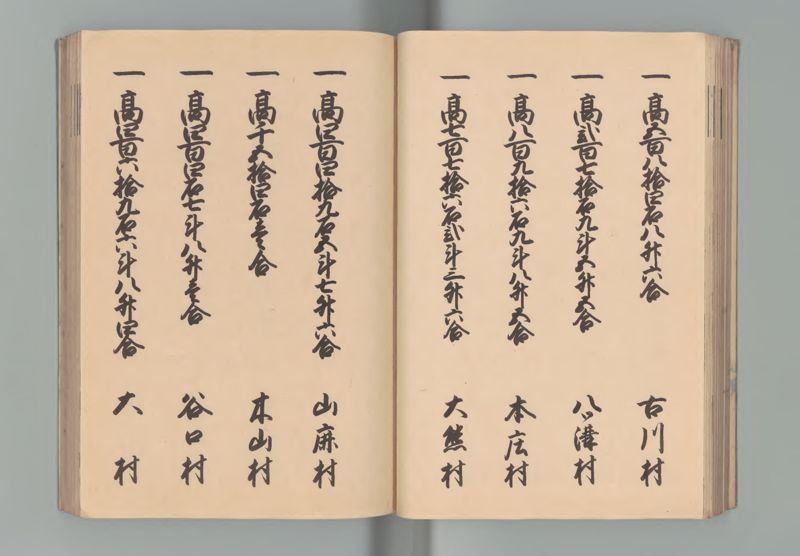 一高五百八拾四石八升六合 古川村
一高弐百七拾石九斗五升五合 八溝村
一高八百九拾六石九斗八升五合 本庄村
一高七百七拾六石弐斗三升六合 大熊村
一高四百四拾九石五斗七升六合 山麻村
一高千五拾四石壱合 木山村
一高四百四石七斗八升壱合 谷口村
一高四百六拾九石六斗八升四合 大村